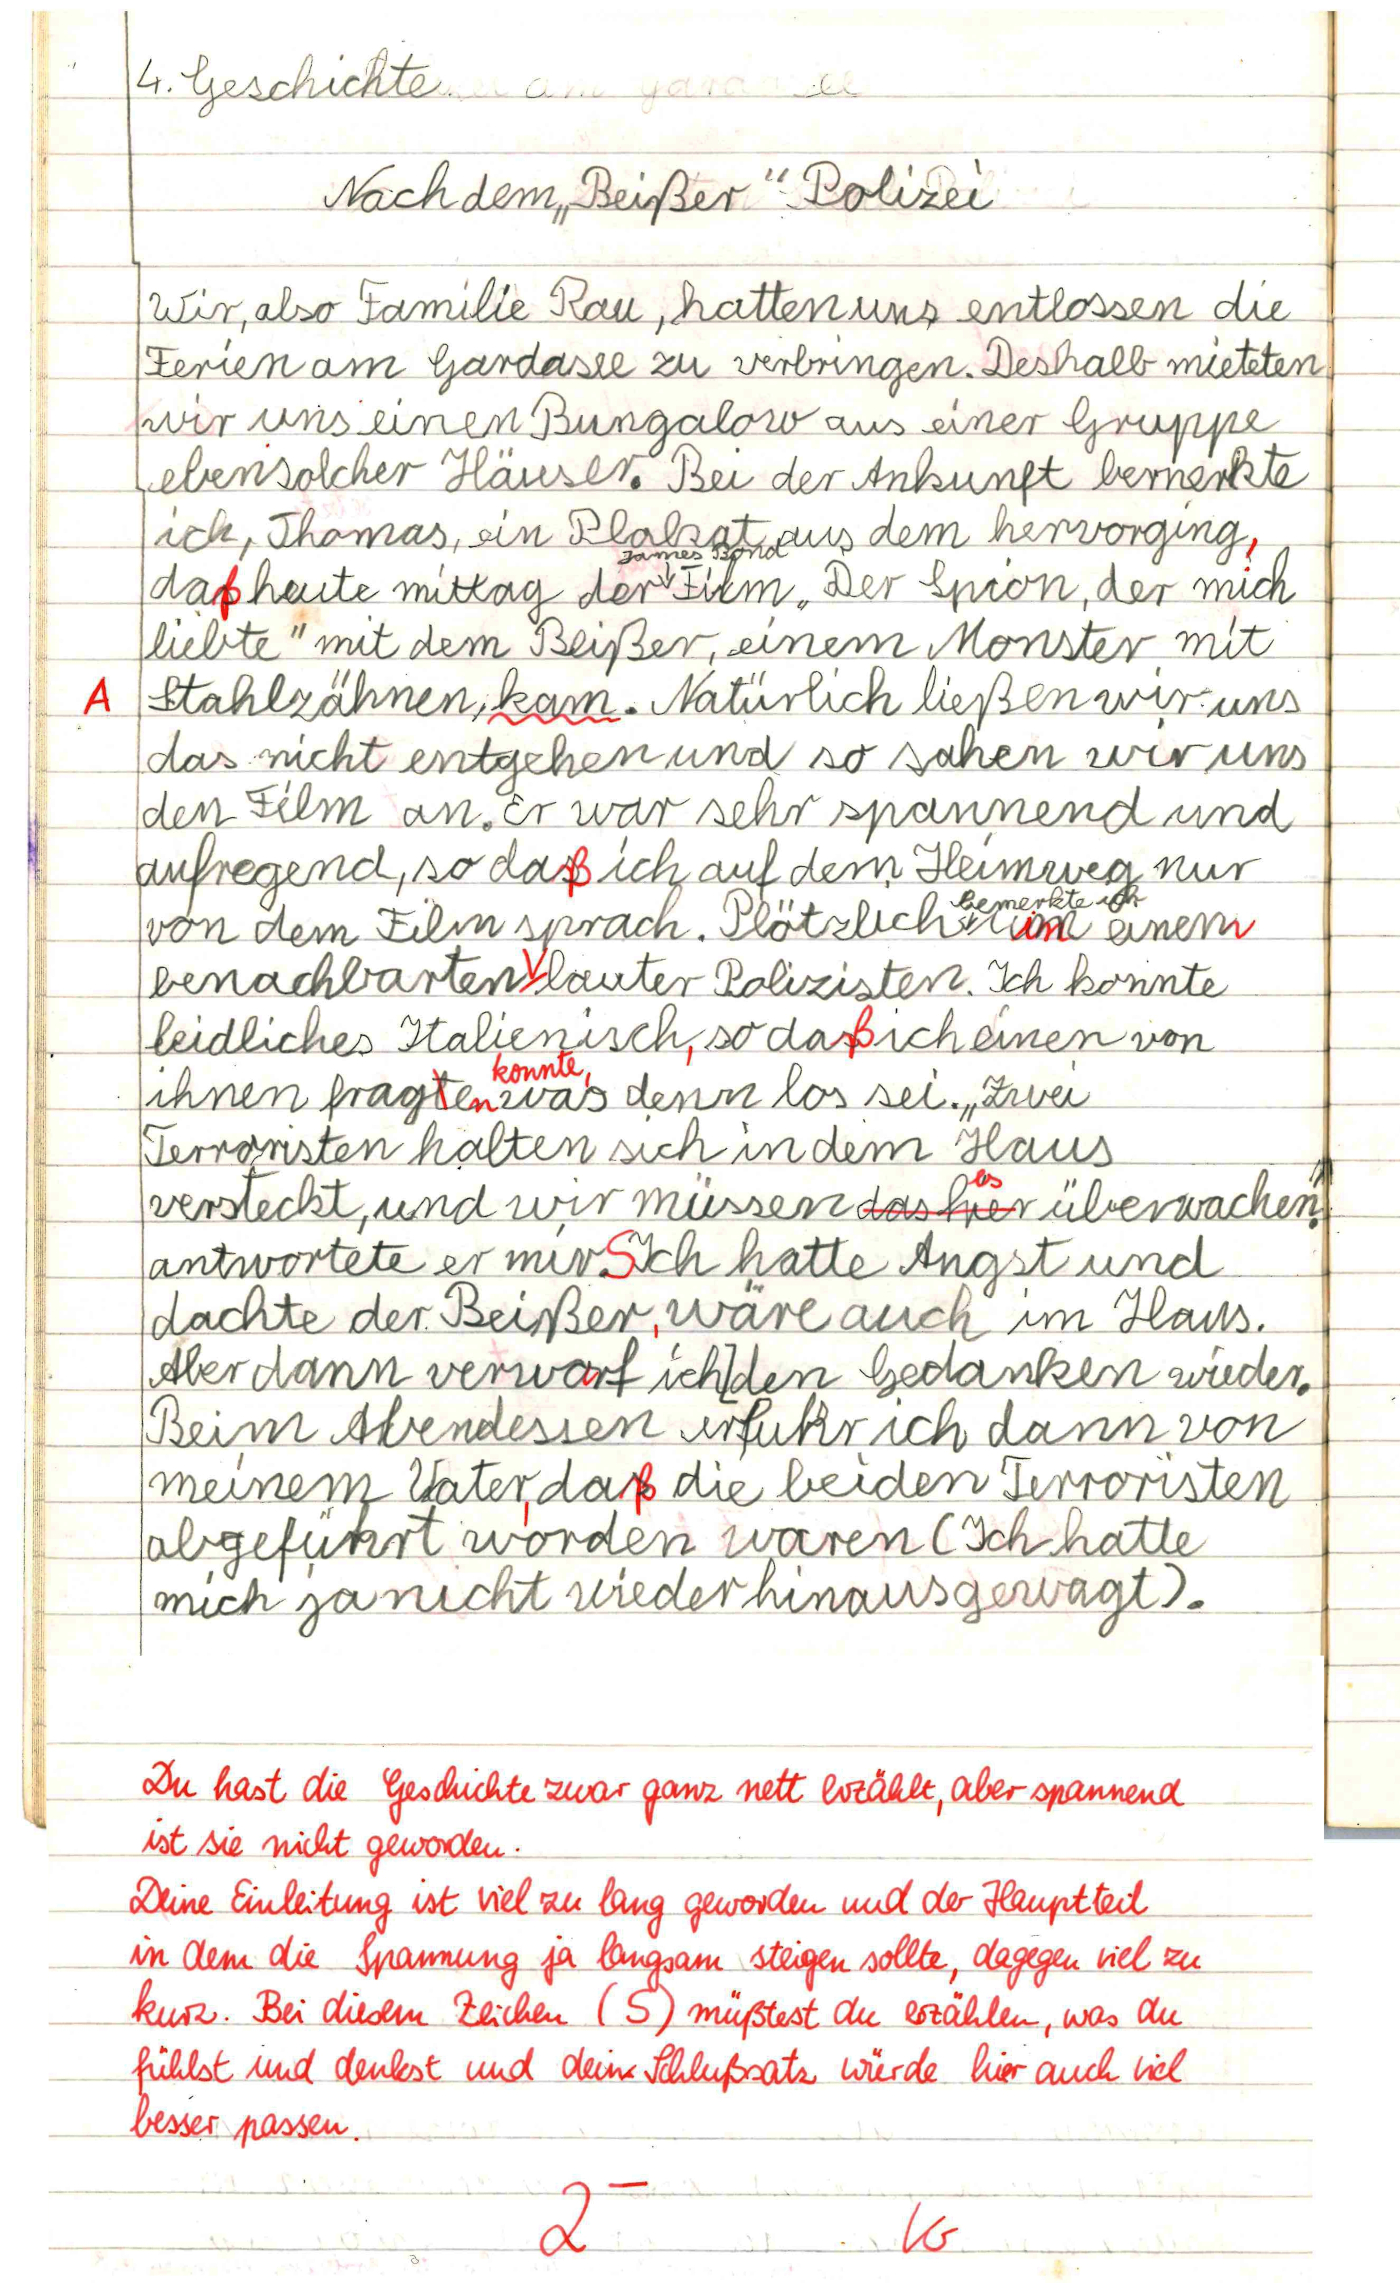 4. Geschichte
Nach dem „Beißer“ Polizei
Wir, also Familie Rau, hatten uns entlossen die
Ferien am Gardasee zu verbringen. Deshalb mieteten
wir uns einen Bungalow aus einer Gruppe
ebensolcher Häuser. Bei der Ankunft bemerkte
ich, Thomas, ein Plakat, aus dem hervorging,
James Bond
daß heute mittag der Film „Der Spion, der mich
liebte" mit dem Beißer, einem Monster mit
A Stahlzähnen, kam. Natürlich ließen wir uns
das nicht entgehen und so sahen wir uns
den Film an. Er war sehr spannend und
aufregend, so daß ich auf dem Heimweg nur
bemerkte ich
von dem Film sprach. Plötzlich in einem
benachbarten V lauter Polizisten. Ich konnte
leidliches Italienisch, so daß ich einen von
konnte,
ihnen fragen was denn los sei. „Zwei
Terroristen halten sich in dem Haus
es
versteckt, und wir müssen das hier überwachen"
antwortete er mir. S Ich hatte Angst und
dachte der Beißer, wäre auch im Haus.
Aber dann verwarf ich] den Gedanken wieder.
Beim Abendessen erfuhr ich dann von
meinem Vater, daß die beiden Terroristen
abgeführt worden waren (Ich hatte
mich ja nicht wieder hinausgewagt).
Du hast die Geschichte zwar ganz nett erzählt, aber spannend
ist sie nicht geworden.
Deine Einleitung ist viel zu lang geworden und der Hauptteil
in dem die Spannung ja langsam steigen sollte, dagegen viel zu
kurz. Bei diesem Zeichen (S) müßtest du erzählen, was du
fühlst und denkst und dein Schlußsatz würde hier auch viel
besser passen.
2-